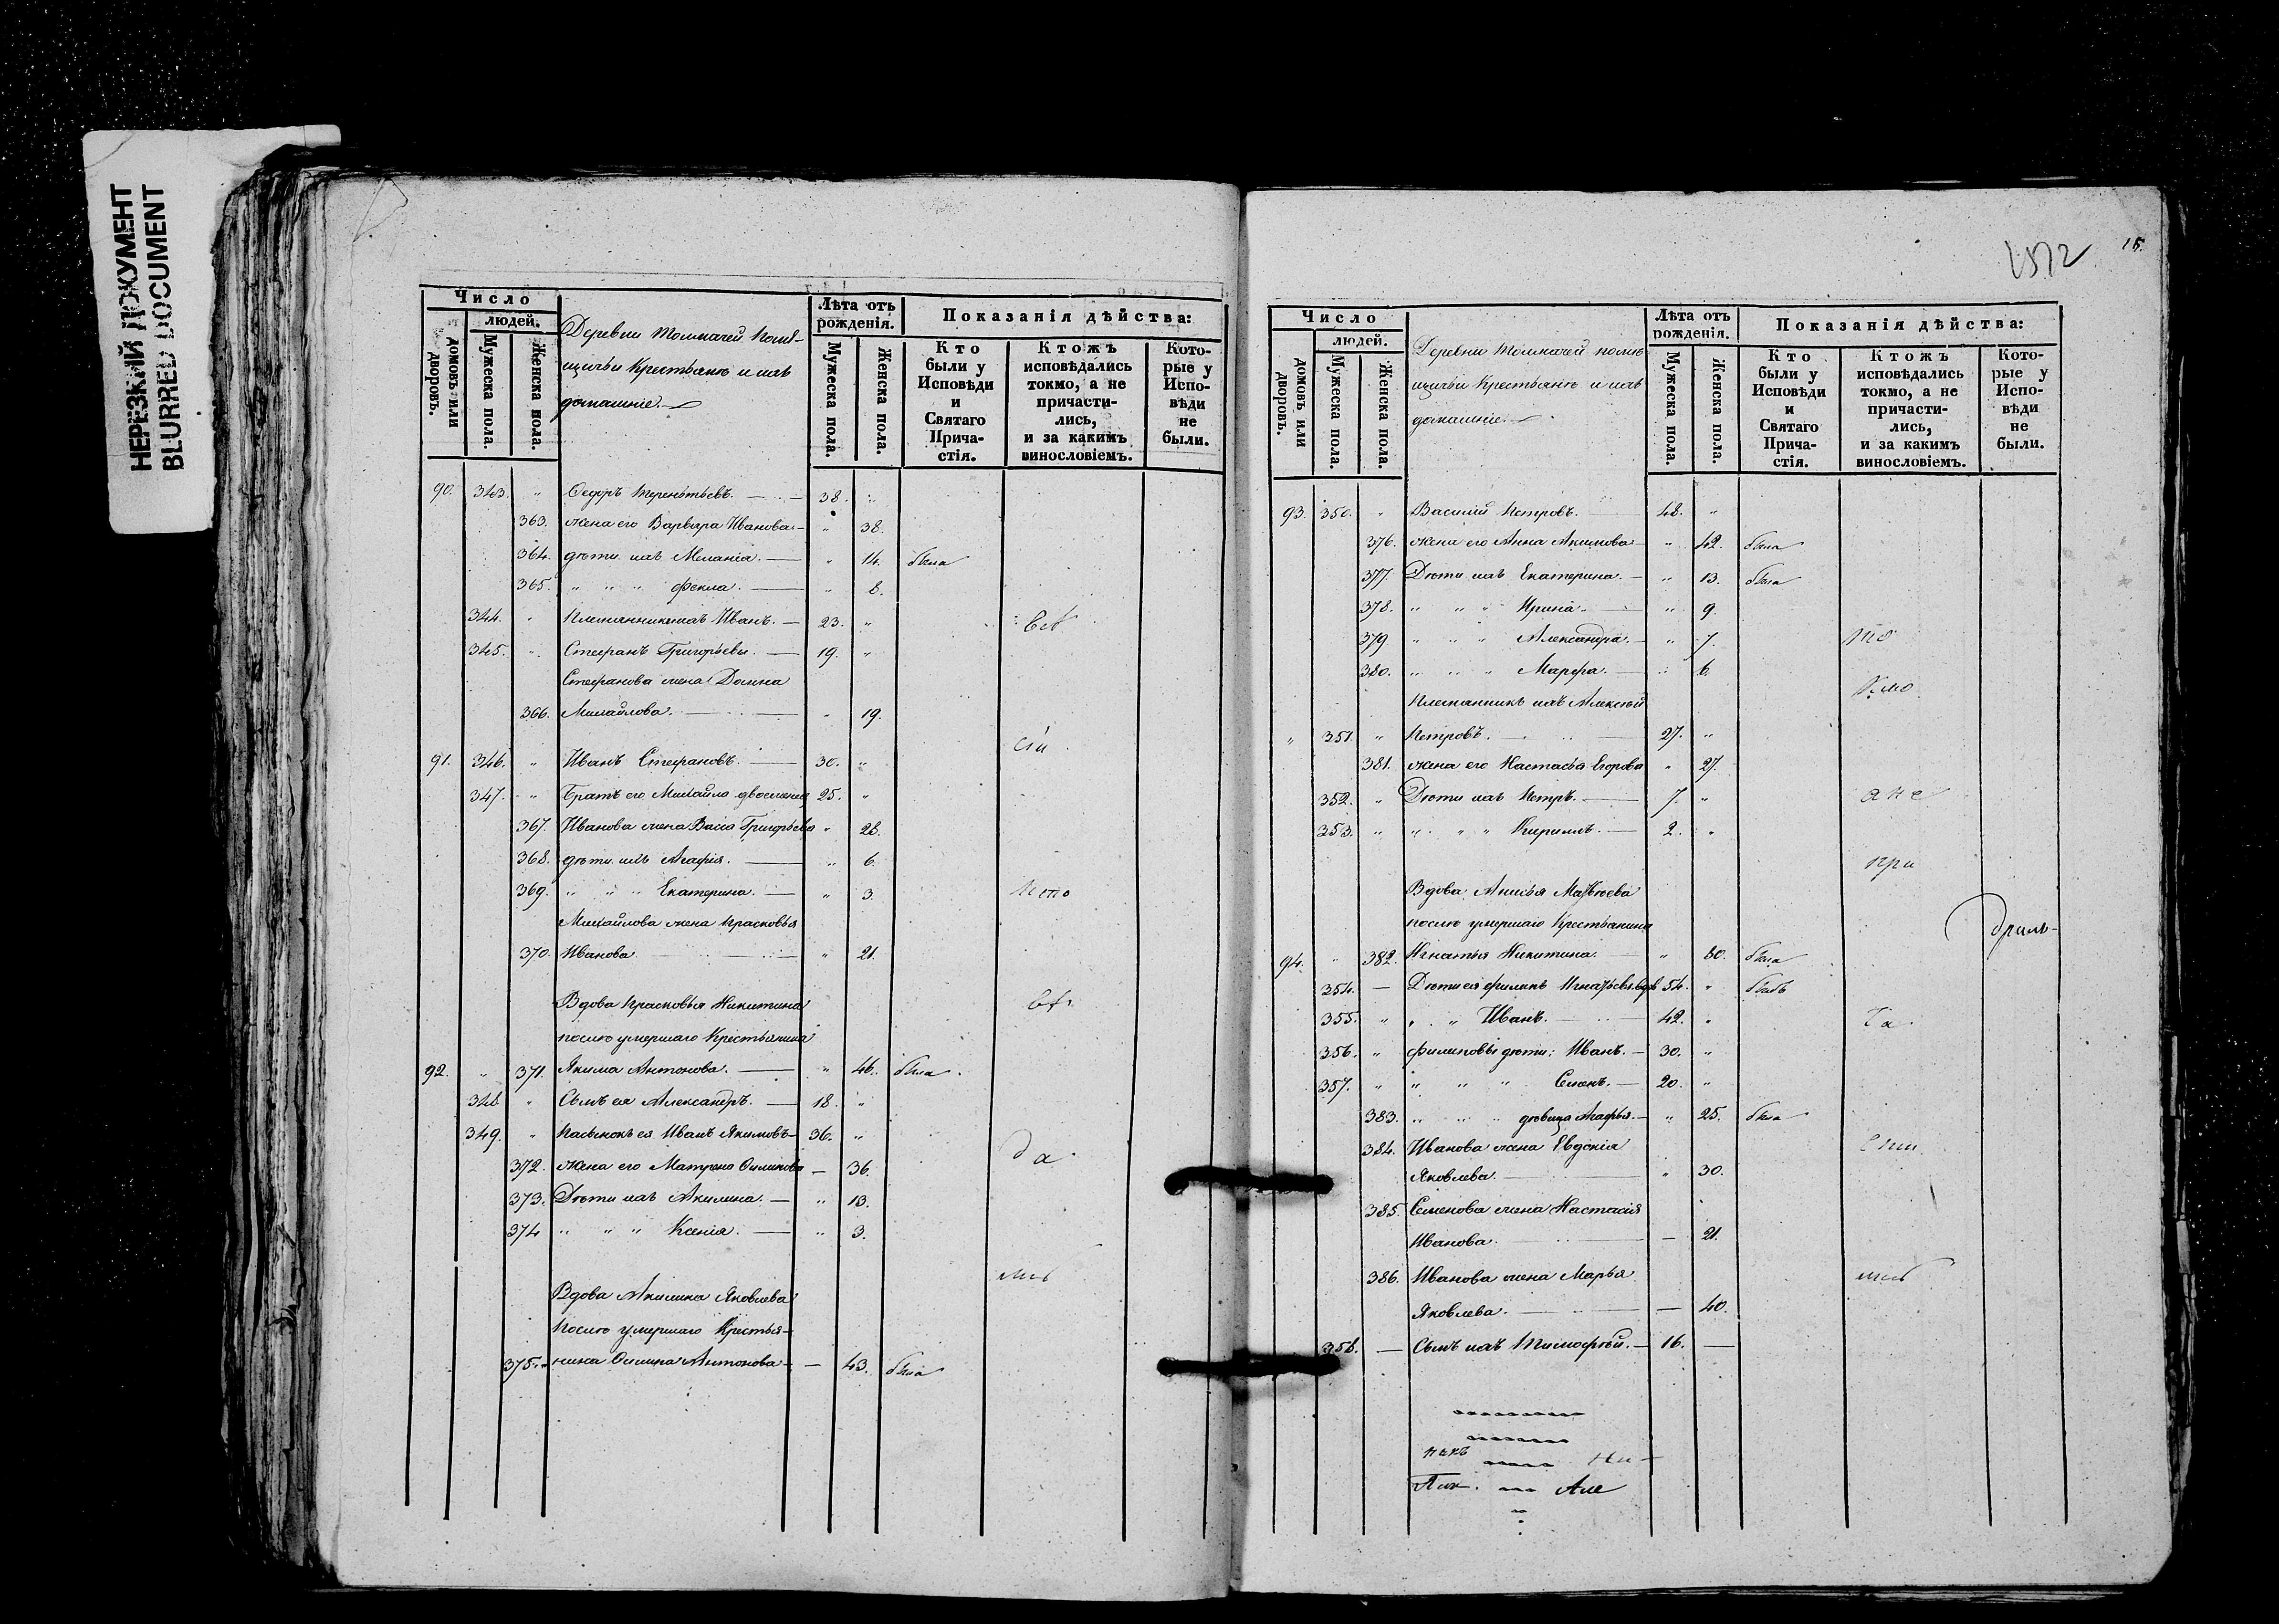 НЕРЕЗКИЙ ДОКУМЕНТ
BLURRED DOCUMENT
Число
людей.
домовъ или дворовъ.
Мужеска пола.
Женска пола.
Деревни Толмачей помѣ-
щичьи Крестьянѣ и ихъ
домашніе.
Лѣта отъ рожденія.
Мужеска пола.
Женска пола.
Показанія дѣйства:
Кто были у Исповѣди и Святаго Прича-стія.
Ктожъ исповѣдались токмо, а не причасти-лись, и за какимъ винословіемъ.
Кото-рые у Испо-вѣди не были.
90. 343. " Ѳедоръ Терентьевъ. — 38. "
363. жена его Варвара Иванова — " 38.
364. дѣти ихъ Меланія. — " 14. была
365. " " " Фекла. — " 8.
344. " Племянники ихъ Иванъ. — 23. "
345. " Стефанъ Григорьевы. — 19. "
Стефанова жена Домна
366. Михайлова. — " 19.
91. 346. " Иванъ Стефановъ. — 30. "
347. " Братъ его Михайло 25. "
367. Иванова жена Васса Григорьева " 28.
368. дѣти ихъ Агафія. — " 6.
369. " " " Екатерина. — " 3.
Михайлова жена Прасковья
370. Иванова — " 21.
Вдова Прасковья Никитина
послѣ умершаго Крестьянина
92. " 371. Якима Антонова. — " 46. была.
348 " Сынъ ея Александръ. — 18. "
349. " Пасынокъ ея Иванъ Якимовъ — 36. "
372. жена его Матрена — 36.
373. Дѣти ихъ Акилина. — " 13.
374 " " " Ксенія. — " 3.
Вдова Акилина Яковлева
послѣ умершаго Крестья-
375. нина Антонова — — 43. была
Всѣ
сіи
да
15.
Число
людей.
домовъ или дворовъ.
Мужеска пола.
Женска пола.
Деревни Толмачей помѣ-
щичьи Крестьянѣ и ихъ
домашніе.
Лѣта отъ рожденія.
Мужеска пола.
Женска пола.
Показанія дѣйства:
Кто были у Исповѣди и Святаго Прича-стія.
Ктожъ исповѣдались токмо, а не причасти-лись, и за какимъ винословіемъ.
Кото-рые у Испо-вѣди не были.
93. 350. " Василий Петровъ. 48. "
376. жена его Анна Акимова — " 42. была
377. Дѣти ихъ Екатерина. — " 13. была
378. " " " Ирина. — " 9.
379 " " " Александра. — " 7.
380. " " " Марфа. — " 6.
Племянникъ ихъ Алексѣй
" 351. " Петровъ. — 27. "
381. жена его Настасья Егорова " 27.
352. " Дѣти ихъ Петръ. — 7. "
353. " " " " Кириллъ. — 2. "
Вдова Анисья Матвѣева
послѣ умершаго Крестьянина
94. " 382. Игнатья Никитина. " 80. была
354. — Дѣти ея Филипъ Игнатьевъ вдовъ 54. " былъ
355. " " " Иванъ. — 42. "
356. " Филиповы дѣти: Иванъ. — 30. "
357. " " " " Семенъ. — 20. "
383. " " " дѣвица Агафья. — " 25. была
384. Иванова жена Евдокія
Яковлева. — " 30.
385. Семенова жена Настасія
Иванова. — — 21.
386. Иванова жена Марья
Яковлева. — — 40.
358. — Сынъ ихъ Тимофѣй. — 16. —
а не
при
ча
Але